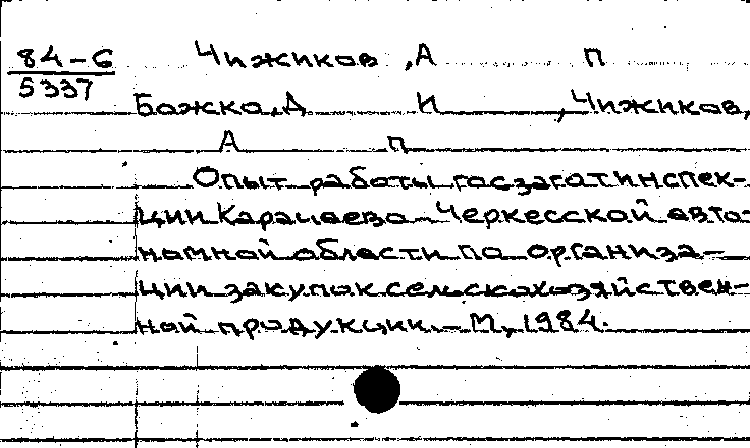 84-6 Чижиков, А П
5337
Божко, Д И, Чижиков,
А П
Опыт работы госзаготинспек-
ции Карачаево-Черкесской авто-
номной области по организа-
ции закупок сельскохозяйствен-
ной продукции. – М., 1984.